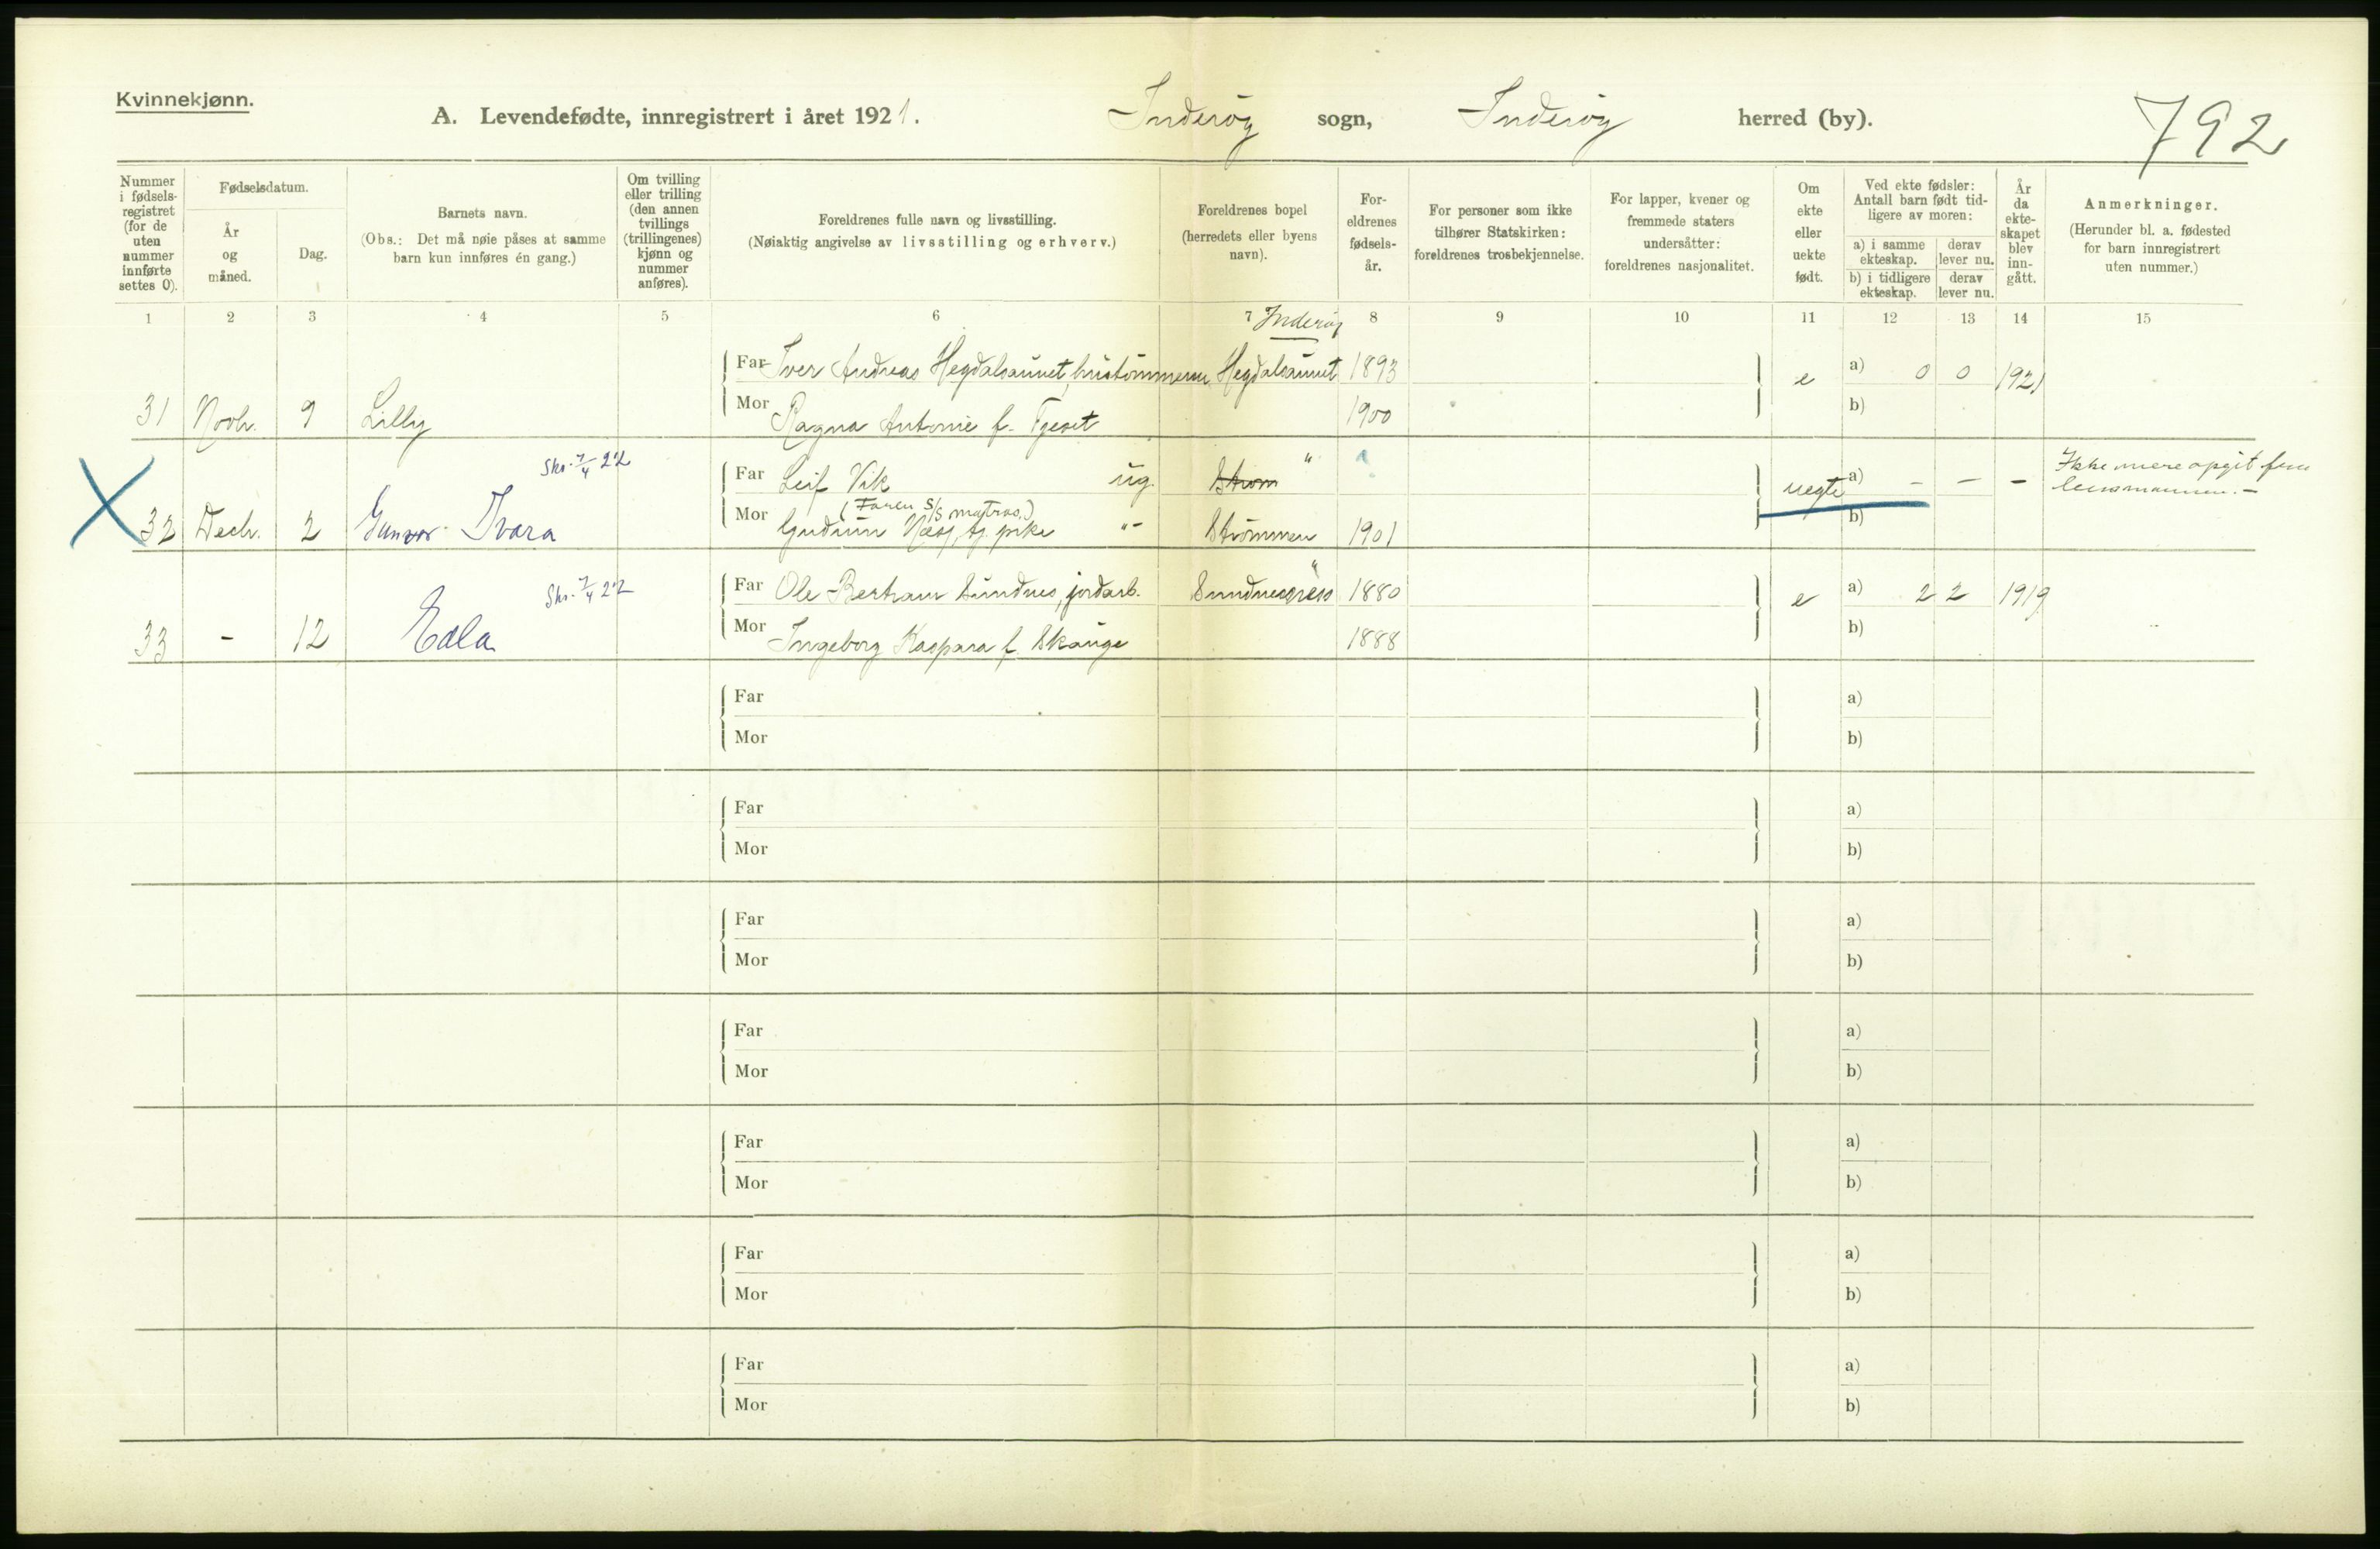 Kvinnekjønn.
A. Levendefødte, innregistrert i året 1921. Inderöy sogn, Inderöy herred (by). 792
Nummer i fødsels-registret (for de uten nummer innførte settes 0).
Fødselsdatum.
År og måned.
Dag.
Barnets navn.
(Obs.: Det må nøie påses at samme barn kun innføres én gang.)
Om tvilling eller trilling (den annen tvillings (trillingenes) kjønn og nummer anføres).
Foreldrenes fulle navn og livsstilling.
(Nøiaktig angivelse av livsstilling og erhverv.)
Foreldrenes bopel (herredets eller byens navn).
For-eldrenes fødsels-år.
For personer som ikke tilhører Statskirken: foreldrenes trosbekjennelse.
For lapper, kvener og fremmede staters undersåtter: foreldrenes nasjonalitet.
Om ekte eller uekte født.
Ved ekte fødsler: Antall barn født tid-ligere av moren:
a) i samme ekteskap.
derav lever nu.
b) i tidligere ekteskap.
derav lever nu.
År da ekte-skapet blev inn-gått.
Anmerkninger.
(Herunder bl. a. fødested for barn innregistrert uten nummer.)
1 2 3 4 5 6 7 8 9 10 11 12 13 14 15
Inderöy
Far Iver Andreas Hegdalsaunet, hustömmerm. Hegdalsaunet 1893 e a) 0 0 1921
31 Novbr. 9 Lilly Mor Ragna Antonie f. 1900 b)
Skr. 7/4 22 Far Leif Vik ug. Strøm " uegte a) - - - Ikke mere opgit fra lensmannen. -
(Faren s/s matros.)
X 32 Decbr. 2 Gunvor Ivara Mor Gudrun Næss, tj. pike "- Strömmen 1901 b)
Skr. 7/4 22 Far Ole Bertram Sundnes, jordarb. Sundnes " 1880 e a) 2 2 1919
33 - 12 Edla Mor Ingeborg Kaspara f. Skauge 1888 b)
Far a)
Mor b)
Far a)
Mor b)
Far a)
Mor b)
Far a)
Mor b)
Far a)
Mor b)
Far a)
Mor b)
Far a)
Mor b)